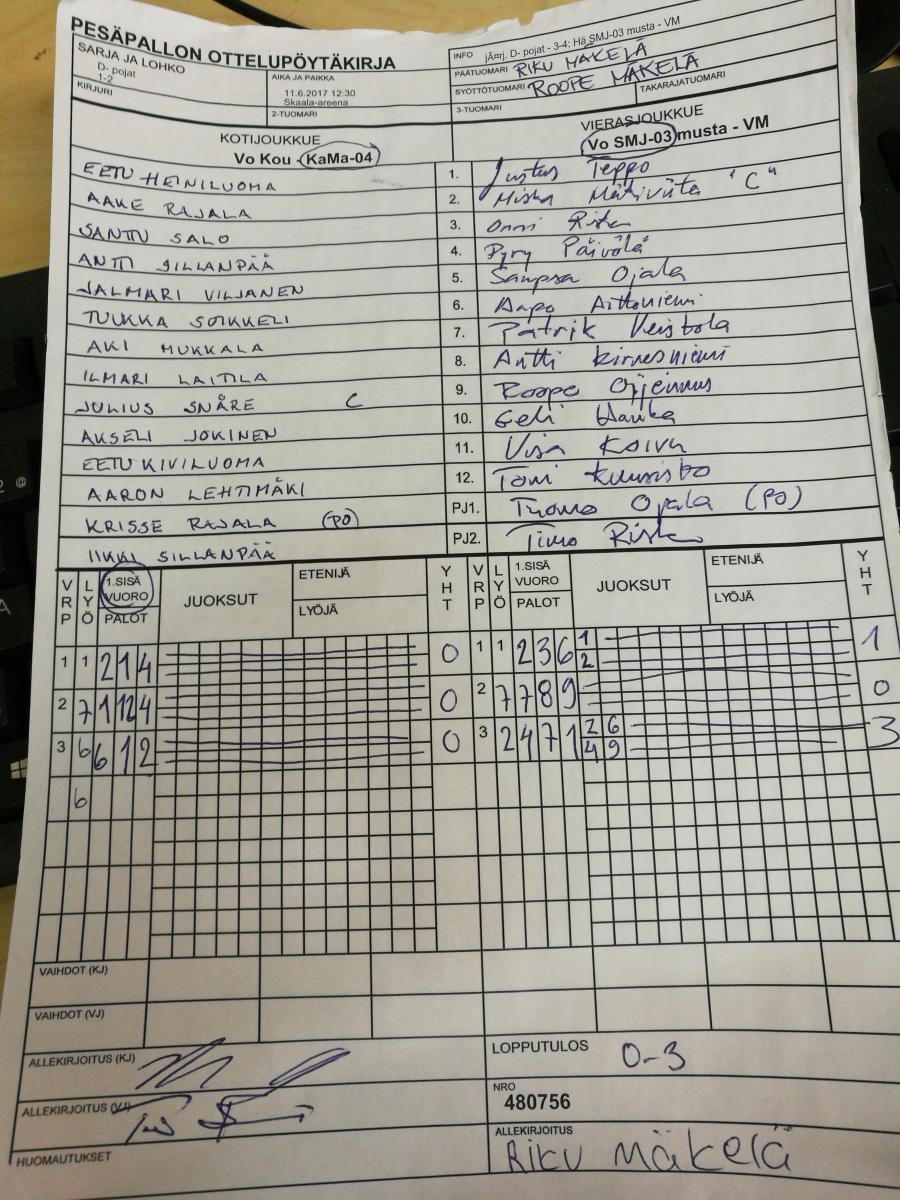 PESÄPALLON OTTELUPÖYTÄKIRJA
SARJA JA LOHKO
D- pojat
1-2
KIRJURI
AIKA JA PAIKKA
11.6.2017 12:30
Skaala-areena
2-TUOMARI
INFO jÄgrj. D- pojat - 3-4: Hä SMJ-03 musta - VM
PÄÄTUOMARI RIKU MÄKELÄ
SYÖTTÖTUOMARI ROOPE MÄKELÄ
TAKARAJATUOMARI
3-TUOMARI
KOTIJOUKKUE
Vo Kou - KaMa-04
VIERASJOUKKUE
Vo SMJ-03 musta - VM
EETU HEINILUOMA 1. Justus Teppo
AAKE RAJALA 2. Miska Mäkiviita "C"
SANTTU SALO 3. Onni Risku
ANTTI SILLANPÄÄ 4. Pyry Päivölä
JALMARI VILJANEN 5. Sampsa Ojala
TUUKKA SOIKKELI 6. Aapo Aittoniemi
AKI MUKKALA 7. Patrik Keistola
ILMARI LAITILA 8. Antti Kirvesniemi
JULIUS SNÅRE C 9. Roope
AKSELI JOKINEN 10. Eeli Hauka
EETU KIVILUOMA 11. Visa Koivu
AARON LEHTIMÄKI 12. Toni Kuusisto
KRISSE RAJALA (PO) PJ1. Tuomo Ojala (PO)
SILLANPÄÄ PJ2. Timo Risku
VRP LYÖ 1.SISÄ VUORO PALOT JUOKSUT ETENIJÄ LYÖJÄ YHT VRP LYÖ 1.SISÄ VUORO PALOT JUOKSUT ETENIJÄ LYÖJÄ YHT
1 1 2 1 4 0 1 1 2 3 6 1 2 1
2 7 1 12 4 0 2 7 7 8 9 0
3 6 6 1 2 0 3 2 4 7 1 2 6 4 9 3
6
VAIHDOT (KJ)
VAIHDOT (VJ)
ALLEKIRJOITUS (KJ)
LOPPUTULOS 0-3
ALLEKIRJOITUS (VJ)
NRO
480756
HUOMAUTUKSET
ALLEKIRJOITUS
Riku Mäkelä